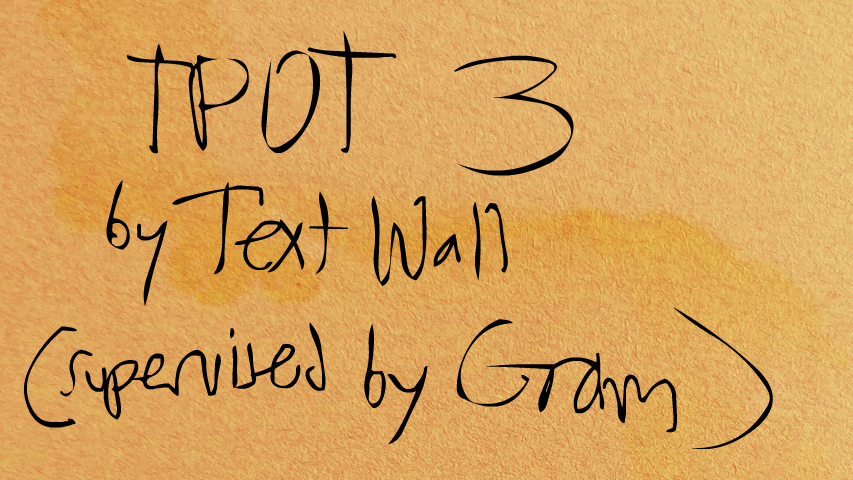 TPOT 3
by Text Wall
(supervised by Gram)